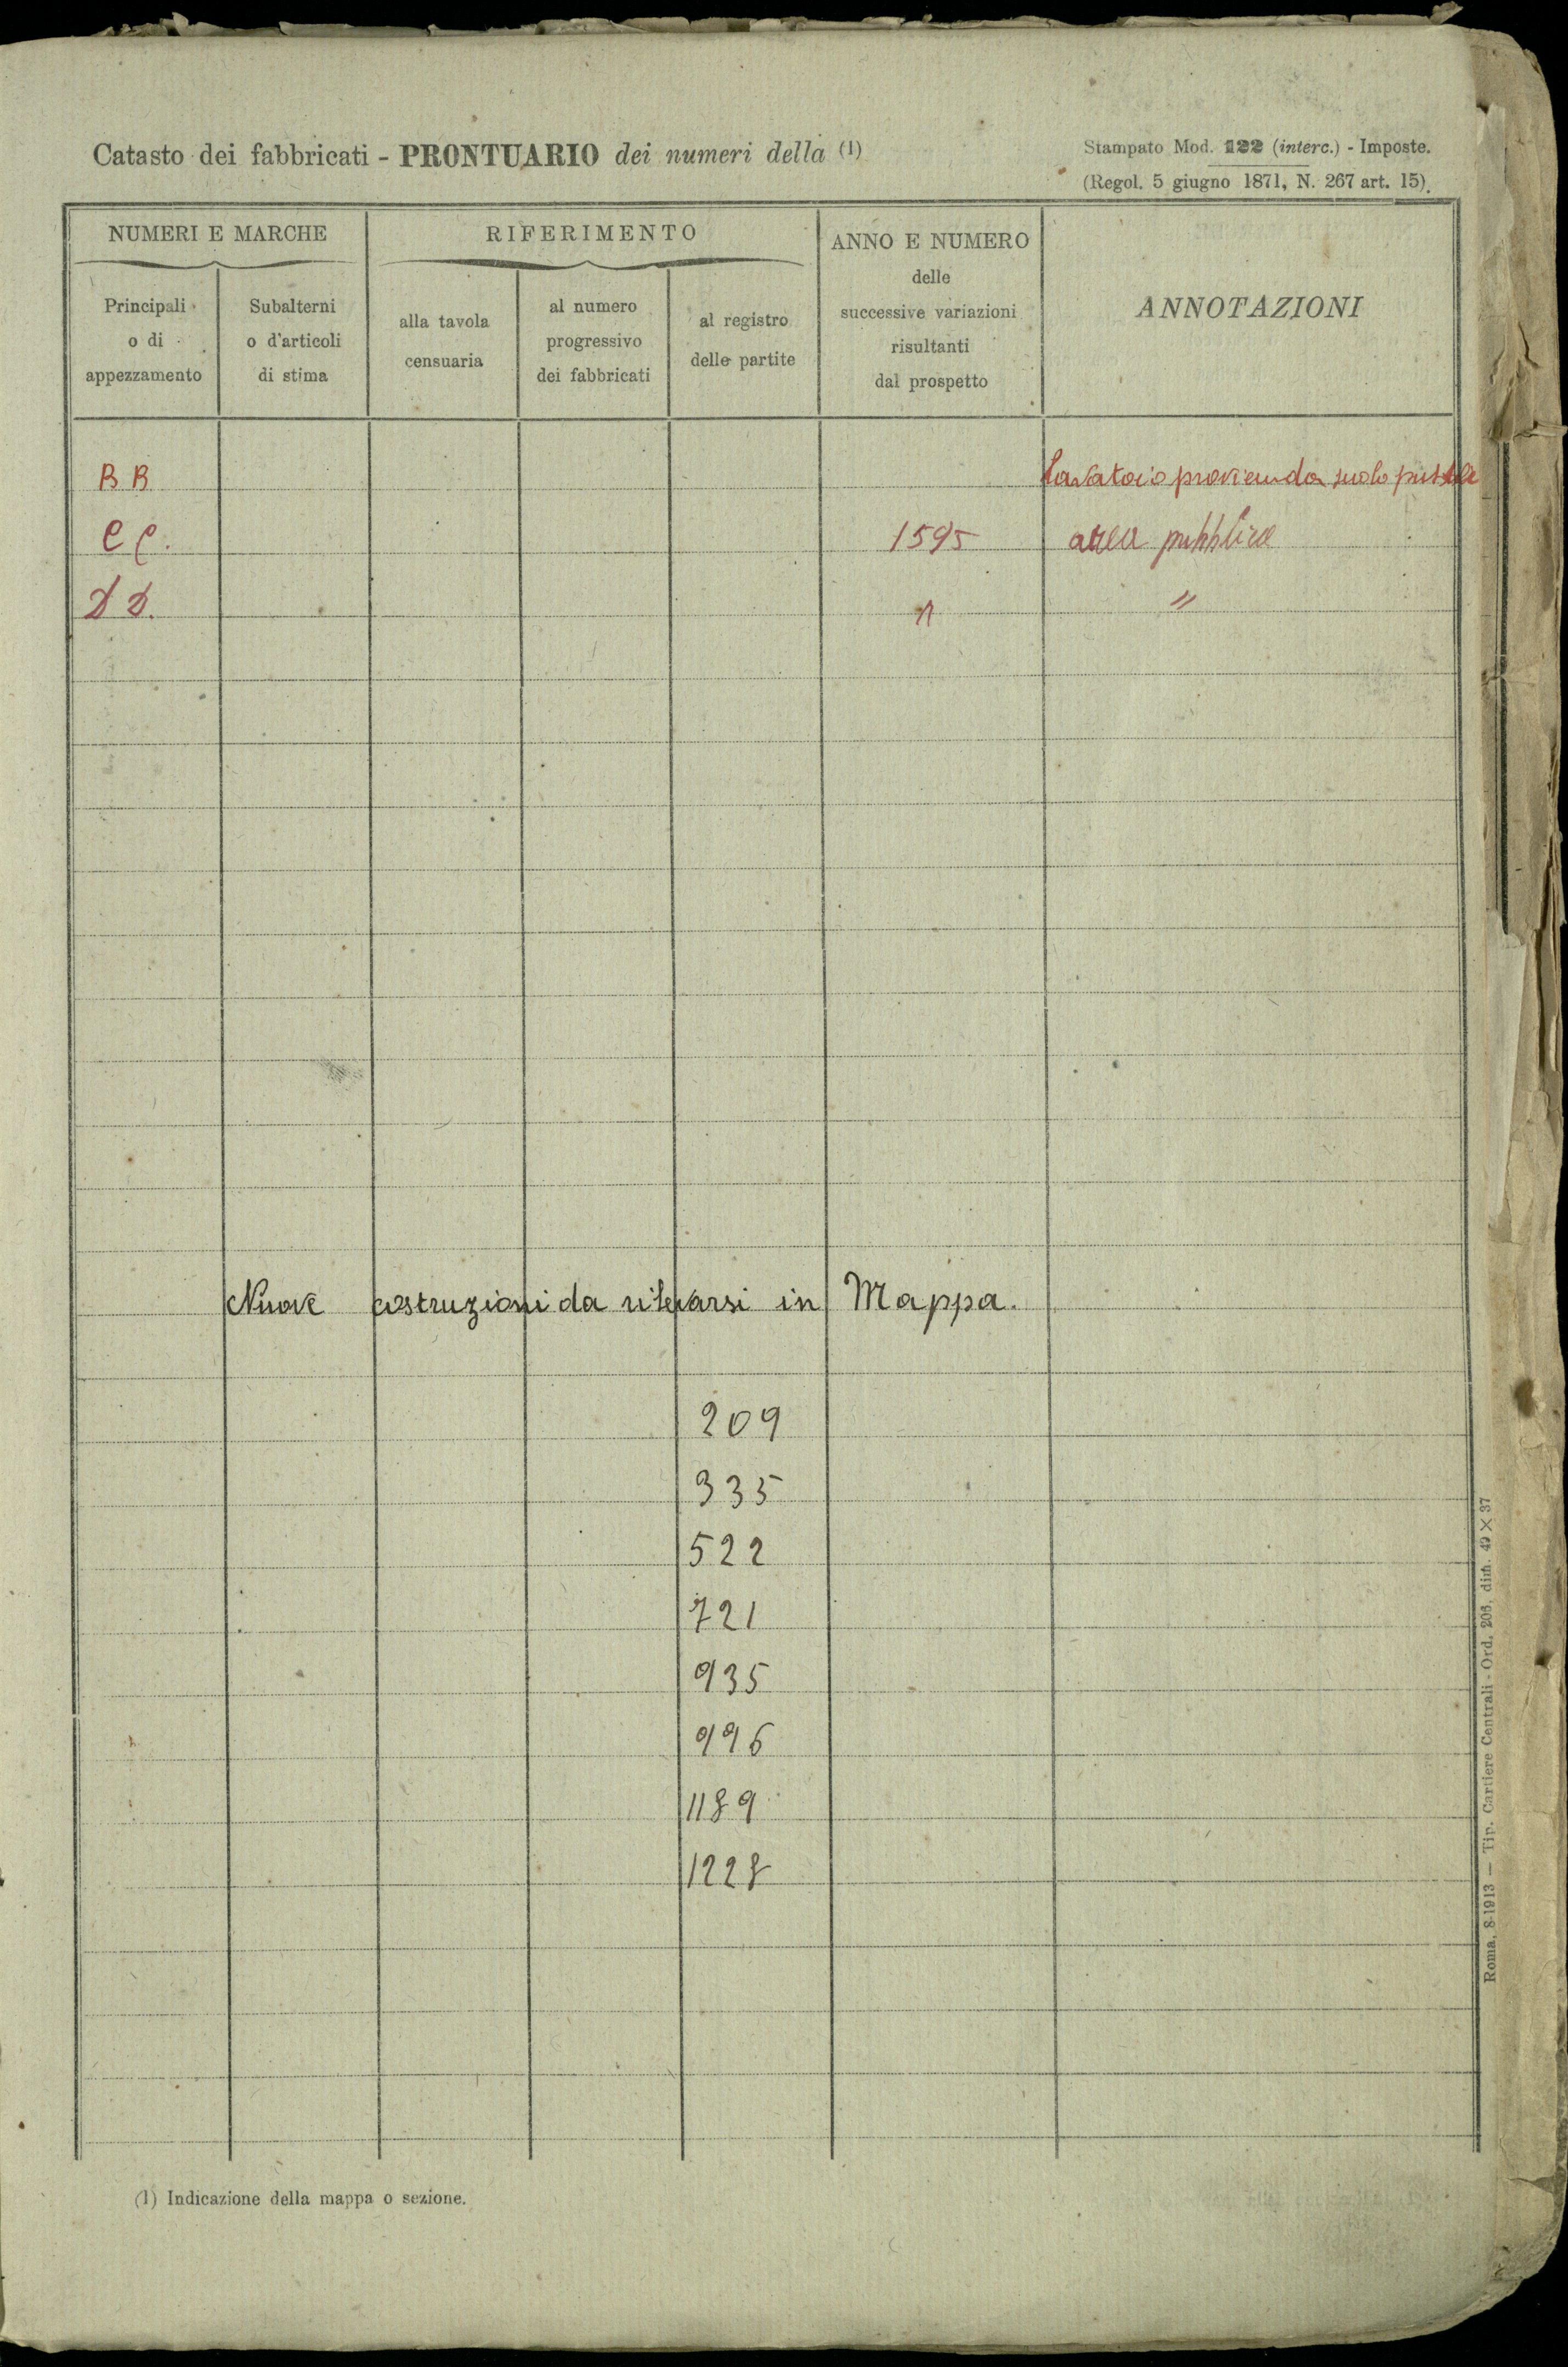 Catasto dei fabbricati - PRONTUARIO dei numeri della (1)
Stampato Mod. 122 (interc.) - Imposte.
(Regol. 5 giugno 1871, N. 267 art. 15).
NUMERI E MARCHE
RIFERIMENTO
ANNO E NUMERO
delle
successive variazioni
risultanti
dal prospetto
ANNOTAZIONI
Principali
o di
appezzamento
Subalterni
o d'articoli
di stima
alla tavola
censuaria
al numero
progressivo
dei fabbricati
al registro
delle partite
BB Lavatoio provien da suolo
CC. 1595 area pubblica
DD. " "
Nuove costruzioni da rilevarsi in Mappa.
209
335
522
721
935
996
1189
1228
(1) Indicazione della mappa o sezione.
Roma, 8-1913 — Tip. Cartiere Centrali - Ord. 206, dim. 49 X 37